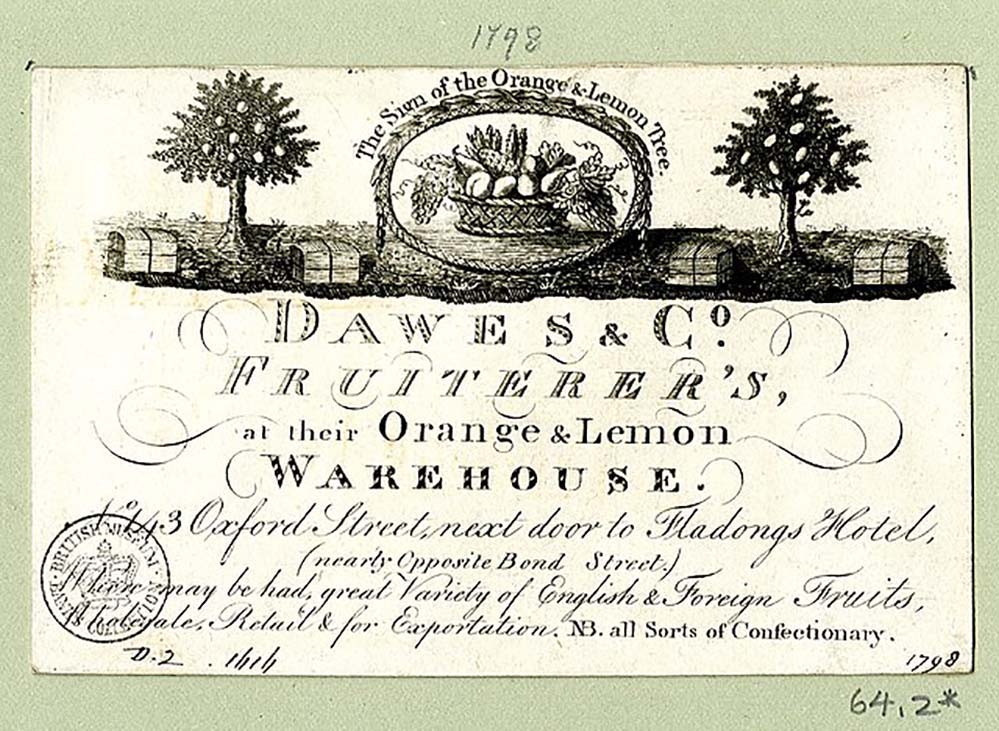 1798
The Sign of the Orange & Lemon Tree.
DAWES & Co.
FRUITERER'S,
at their Orange & Lemon
WAREHOUSE.
No 143 Oxford Street, next door to Fladongs Hotel,
(nearly Opposite Bond Street.)
Where may be had, great Variety of English & Foreign Fruits,
Wholesale, Retail & for Exportation. NB. all Sorts of Confectionary.
BRITISH MUSEUM
BANKS COLL
D.2
1798
64,2*